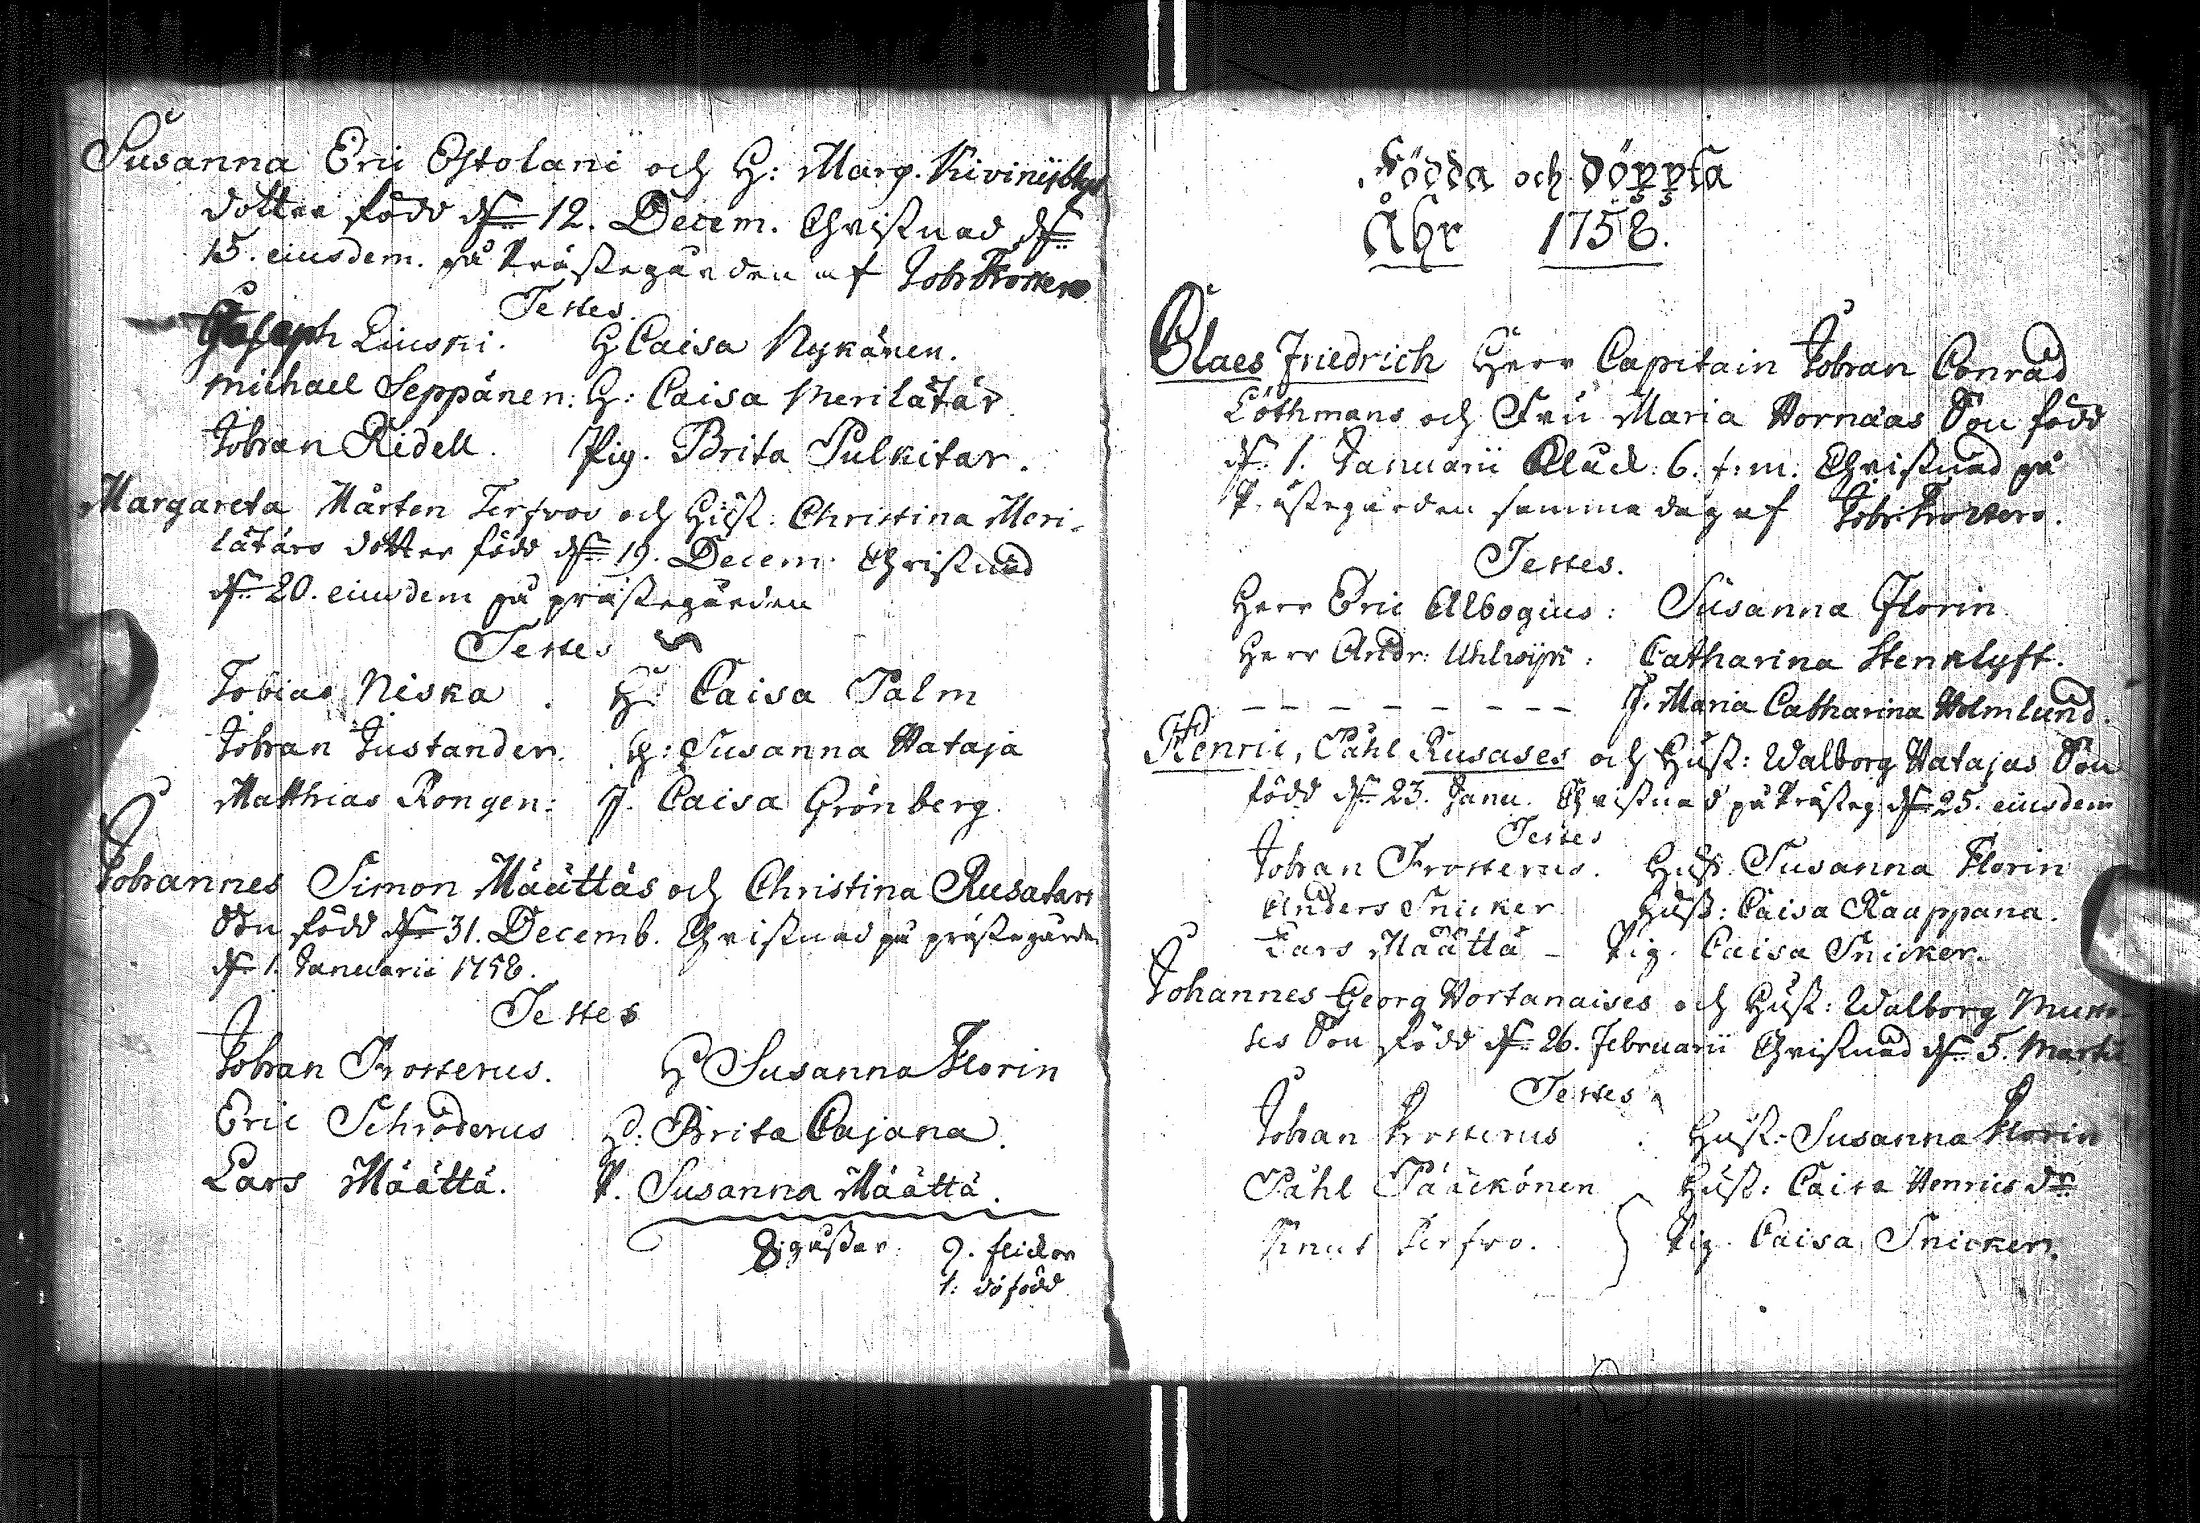 Susanna Eric Ostolani och H: Marg.
dotter född d 12. Decem. Christnad d
15. eiusdem. på Prästegården af Joh Frosterus
Testes.
Joseph Liuski. H Caisa Nykänen.
Michael Seppänen: H: Caisa Merilätär
Johan Ridell. Pig. Brita Pulkitar.
Margareta Mårten Terfvos och Hust: Christina Meri-
lätärs dotter född d 19. Decem: Christnad
d 20. eiusdem på prästegården
Testes
Tobias Niska. H: Caisa Palm
Johan Justander. H: Susanna Hataja
Matthias Rongen: J. Caisa Grönberg.
Johannes Simon Määttäs och Christina Rusatars
Son född d 31. Decemb. Christnad på prästegården
d 1. Januarii 1758.
Testes
Johan Frosterus. H Susanna Florin
Eric Schroderus H: Brita Cajana.
Lars Määttä. P. Susanna Määttä.
8 gossar. 9. flickor
1: döfödd
Födda och döppta
Åhr 1758.
Claes Friedrich Herr Capitain Johan Conrad
Löthmans och Fru Maria Hornæas Son född
d. 1. Januarii Klock: 6. f:m: Christnad på
Prästegården samma dag af Joh: Frosterus.
Testes.
Herr Eric Albogius: Susanna Florin
Herr Andr: Uhlwijk: Catharina Stenklyft.
- - - - - - - - J. Maria Catharina Holmlund.
Henric, Påhl Rusases och Hust: Walborg Hatajas Son
född d 23. Janu. Christnad på Prästeg d 25. eiusdem
Testes
Johan Frosterus. Hust Susanna Florin
Anders Snicker Hust: Caisa Kauppana.
Lars Määttä - Pig. Caisa Snicker.
Johannes Georg Hortanaises och Hust: Walborg
ses Son född d. 26. Februarii Christnad d 5. Martii
Testes
Johan Frosterus: Hust: Susanna Florin
Påhl Pääckönen Hust: Caisa Henrics dr
Knut Terfvo. Pig. Caisa Snicker.